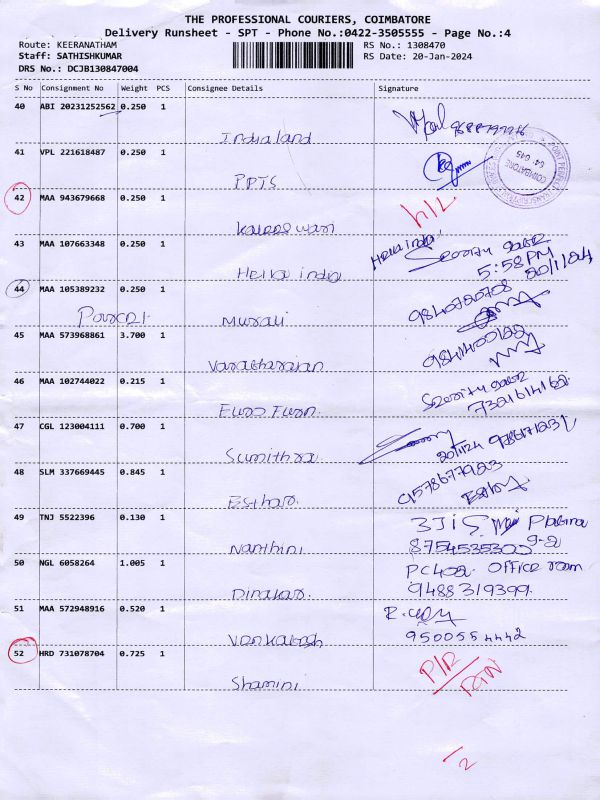 THE PROFESSIONAL COURIERS, COIMBATORE
Delivery Runsheet - SPT - Phone No.:0422-3505555 - Page No.:4
Route: KEERANATHAM RS No.: 1308470
Staff: SATHISHKUMAR RS Date: 20-Jan-2024
DRS No.: DCJB130847004
S No Consignment No Weight PCS Consignee Details Signature
40 ABI 20231252562 0.250 1
Indialand
41 VPL 221618487 0.250 1
PPTS
COIMBATORE
42 MAA 943679668 0.250 1
Kaleeswari
43 MAA 107663348 0.250 1
Hella india
Hella india
5:58 PM
20/1/24
44 MAA 105389232 0.250 1
Parcel
Murali
9840720708
45 MAA 573968861 3.700 1
Varatharajan
46 MAA 102744022 0.215 1
Euro Furn.
47 CGL 123004111 0.700 1
Sumithra
48 SLM 337669445 0.845 1
Esthar.
49 TNJ 5522396 0.130 1
Nanthini
8754535300
50 NGL 6058264 1.005 1
Dinakar.
office room
9488319399.
51 MAA 572948916 0.520 1
Venkatesh
9500554442
52 HRD 731078704 0.725 1
Shamini
P/R
RTN